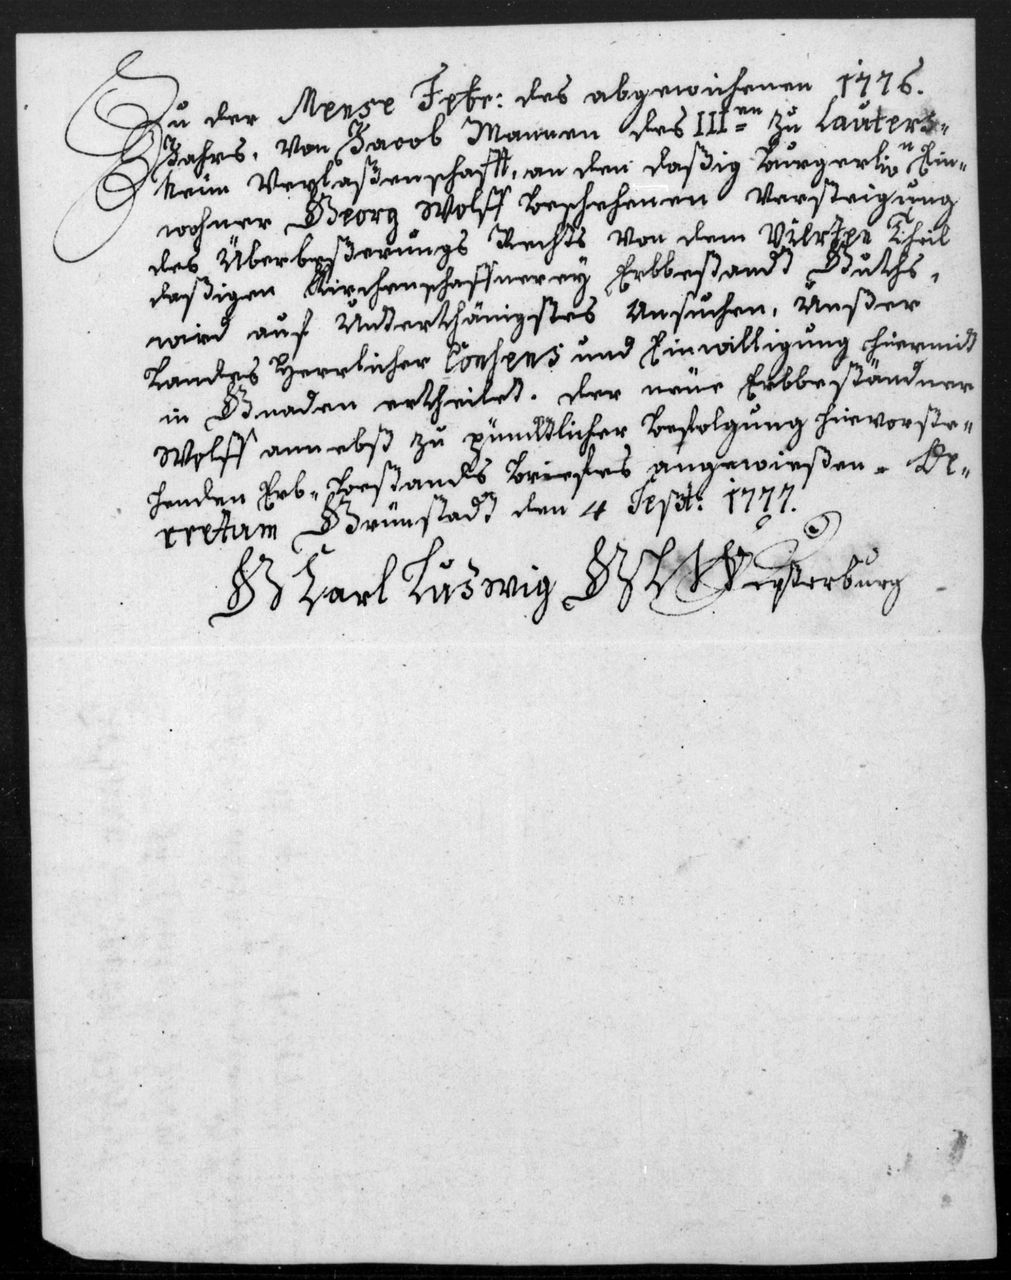 Zu der Mense Febr: des abgewichenen 1776.
Jahrs, von Jacob Mannen des III=en zu Lauters=
heim Verlaßenschafft, an den daßig Burgerlin Ein=
wohner Georg Wolff beschehenen Versteigung
des Überbeßerungs Rechts von dem Theil
daßigen Kirchenschaffnerey Erbbestandt Guths,
wird auf Unterthänigstes Ansuchen, Unßer
Landes Herrlicher Consens und Einwilligung hiermit
in Gnaden ertheilet. Der neüe Erbbeständner
Wolff annebst zu pünctlicher Befolgung hievorste=
henden Erb=bestands Briefes angewießen. De=
cretum Grünstadt den 4 Sept: 1777.
G Carl Ludwig G L Westerburg